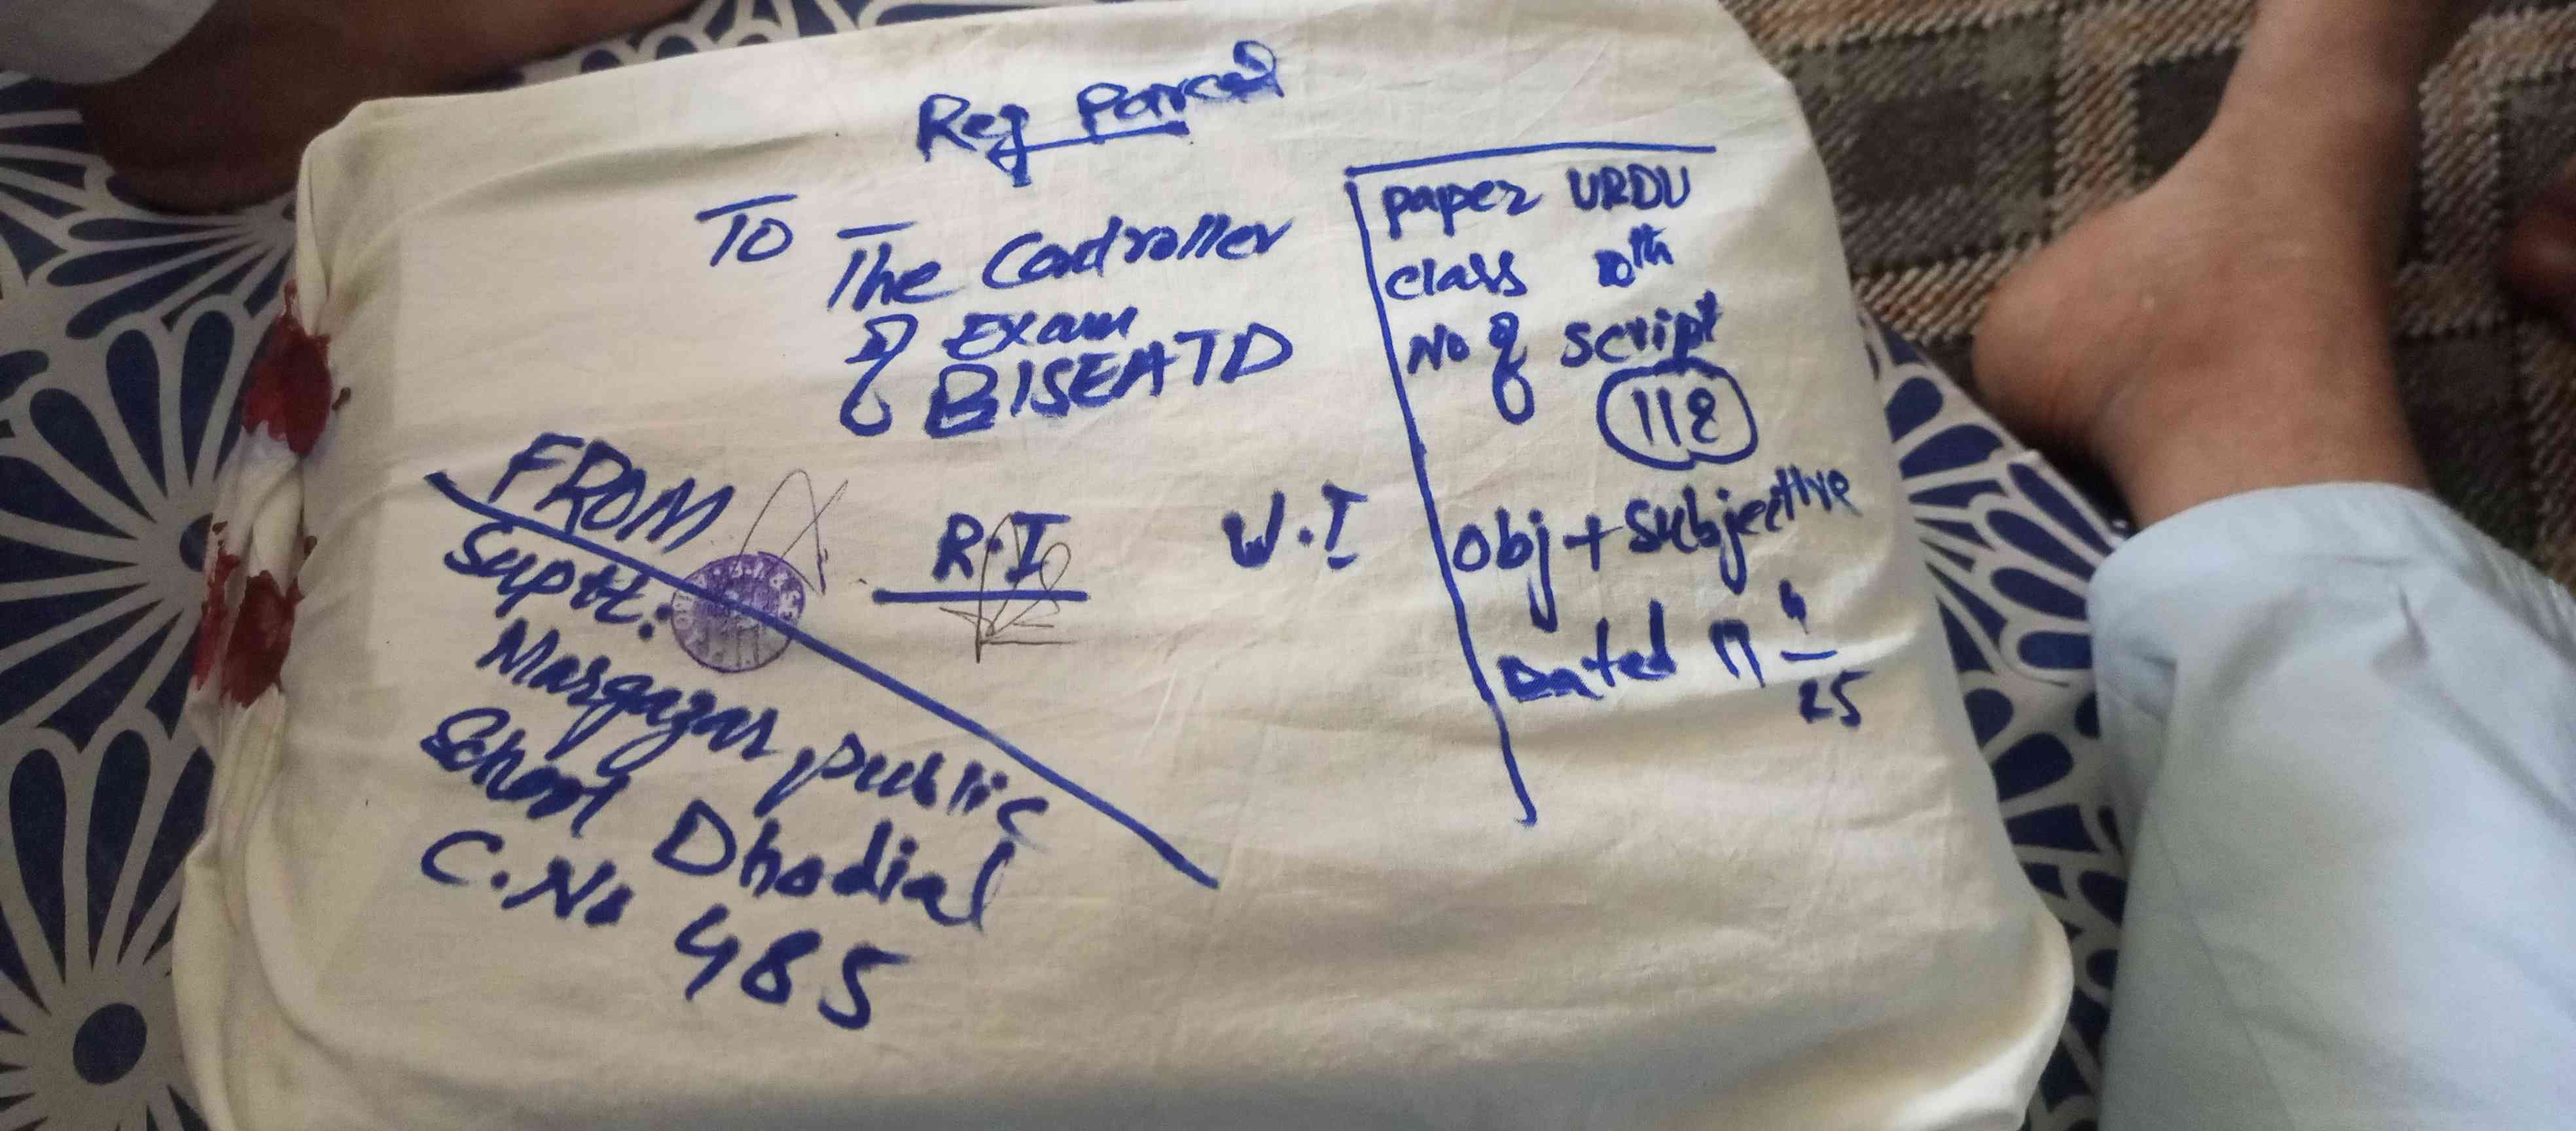 Reg Parcel
To The Controller
of Exam
BISEATD
paper URDU
class 10th
No of script
118
Obj + Subjective
Dated 4
25
FROM
Suptt:
Margazar public
School Dhodial
C. No 485
R.I
W.I